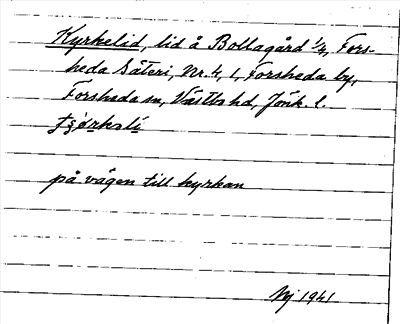 Kyrkelid, lid å Bollagård 1/4, Fors-
heda Säteri, Nr. 4, 1, Forsheda by,
Forsheda sn, Västbo hd, Jönk. l.
på vägen till kyrkan
1941